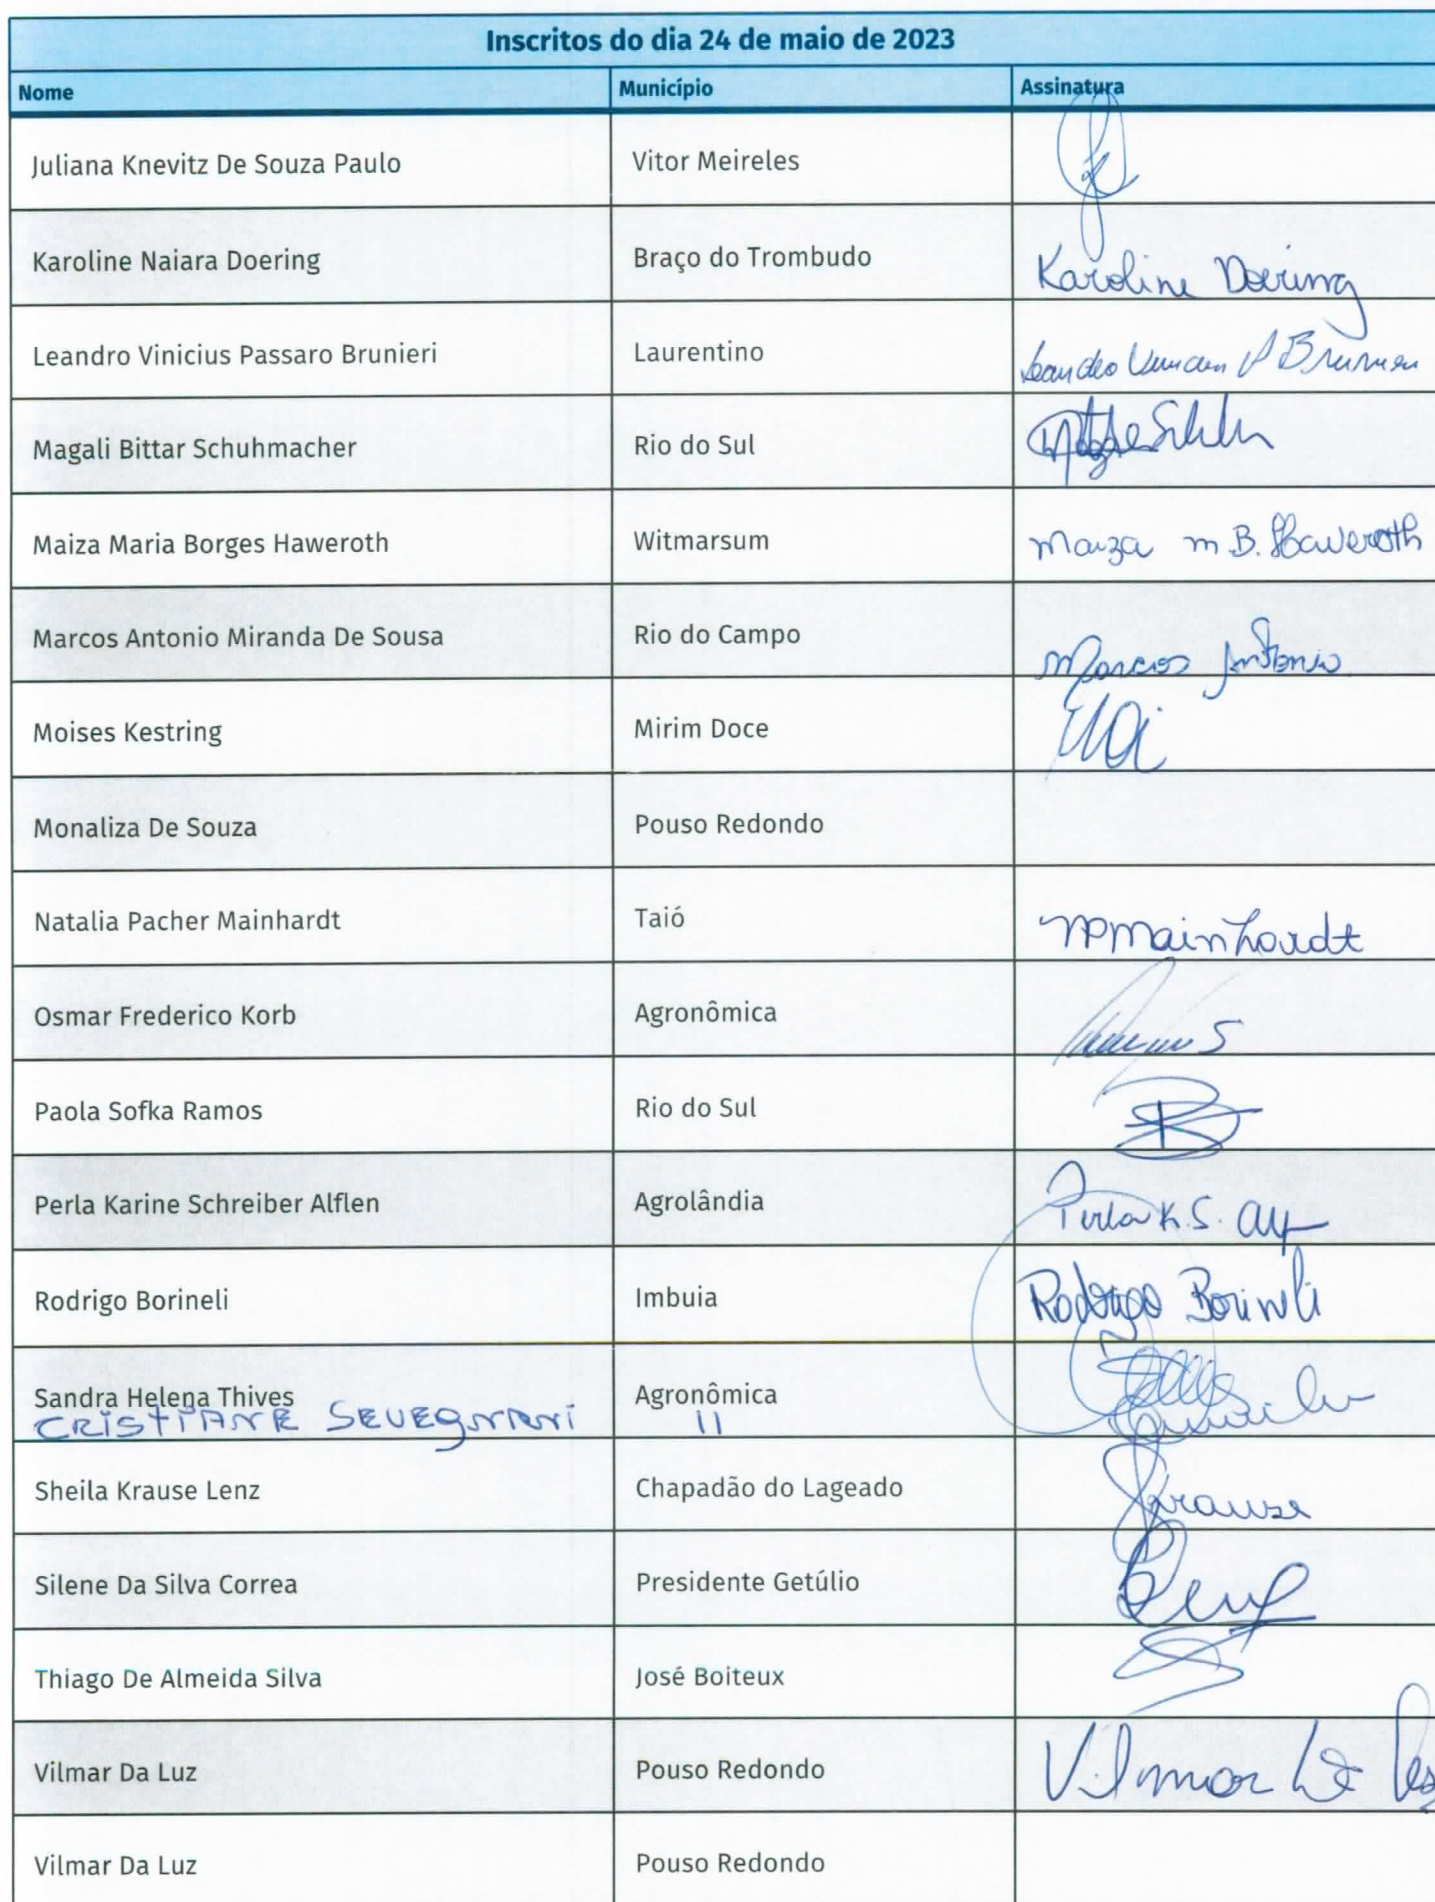 Inscritos do dia 24 de maio de 2023
Nome Município Assinatura
Juliana Knevitz De Souza Paulo Vitor Meireles
Karoline Naiara Doering Braço do Trombudo Karoline Doering
Leandro Vinicius Passaro Brunieri Laurentino Leandro
Magali Bittar Schuhmacher Rio do Sul
Maiza Maria Borges Haweroth Witmarsum Maiza m B. Haweroth
Marcos Antonio Miranda De Sousa Rio do Campo Marcos Antonio
Moises Kestring Mirim Doce
Monaliza De Souza Pouso Redondo
Natalia Pacher Mainhardt Taió NPMainhardt
Osmar Frederico Korb Agronômica
Paola Sofka Ramos Rio do Sul
Perla Karine Schreiber Alflen Agrolândia Perla K. S.
Rodrigo Borineli Imbuia Rodrigo Borineli
Sandra Helena Thives Agronômica
CRISTIANE SEVEGNANI 11
Sheila Krause Lenz Chapadão do Lageado Krause
Silene Da Silva Correa Presidente Getúlio
Thiago De Almeida Silva José Boiteux
Vilmar Da Luz Pouso Redondo Vilmar
Vilmar Da Luz Pouso Redondo